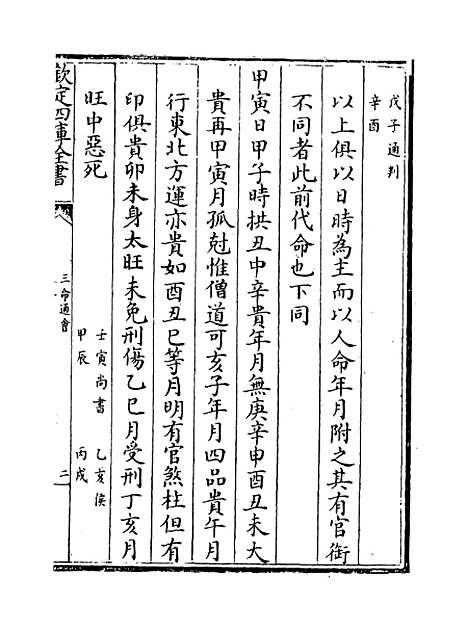 戊子通判
辛酉
以上俱以日時為主而以人命年月附之其有官銜
不同者此前代命也下同
甲寅日甲子時拱丑中辛貴年月無庚辛申酉丑未大
貴再甲寅月孤尅惟僧道可亥子年月四品貴午月
行東北方運亦貴如酉丑巳等月明有官煞杜但有
印俱貴卯未身太旺未免刑傷乙巳月受刑丁亥月
旺中惡死
壬寅尚書 乙亥侯
甲辰 丙戌
欽定四庫全書
三命通會
二